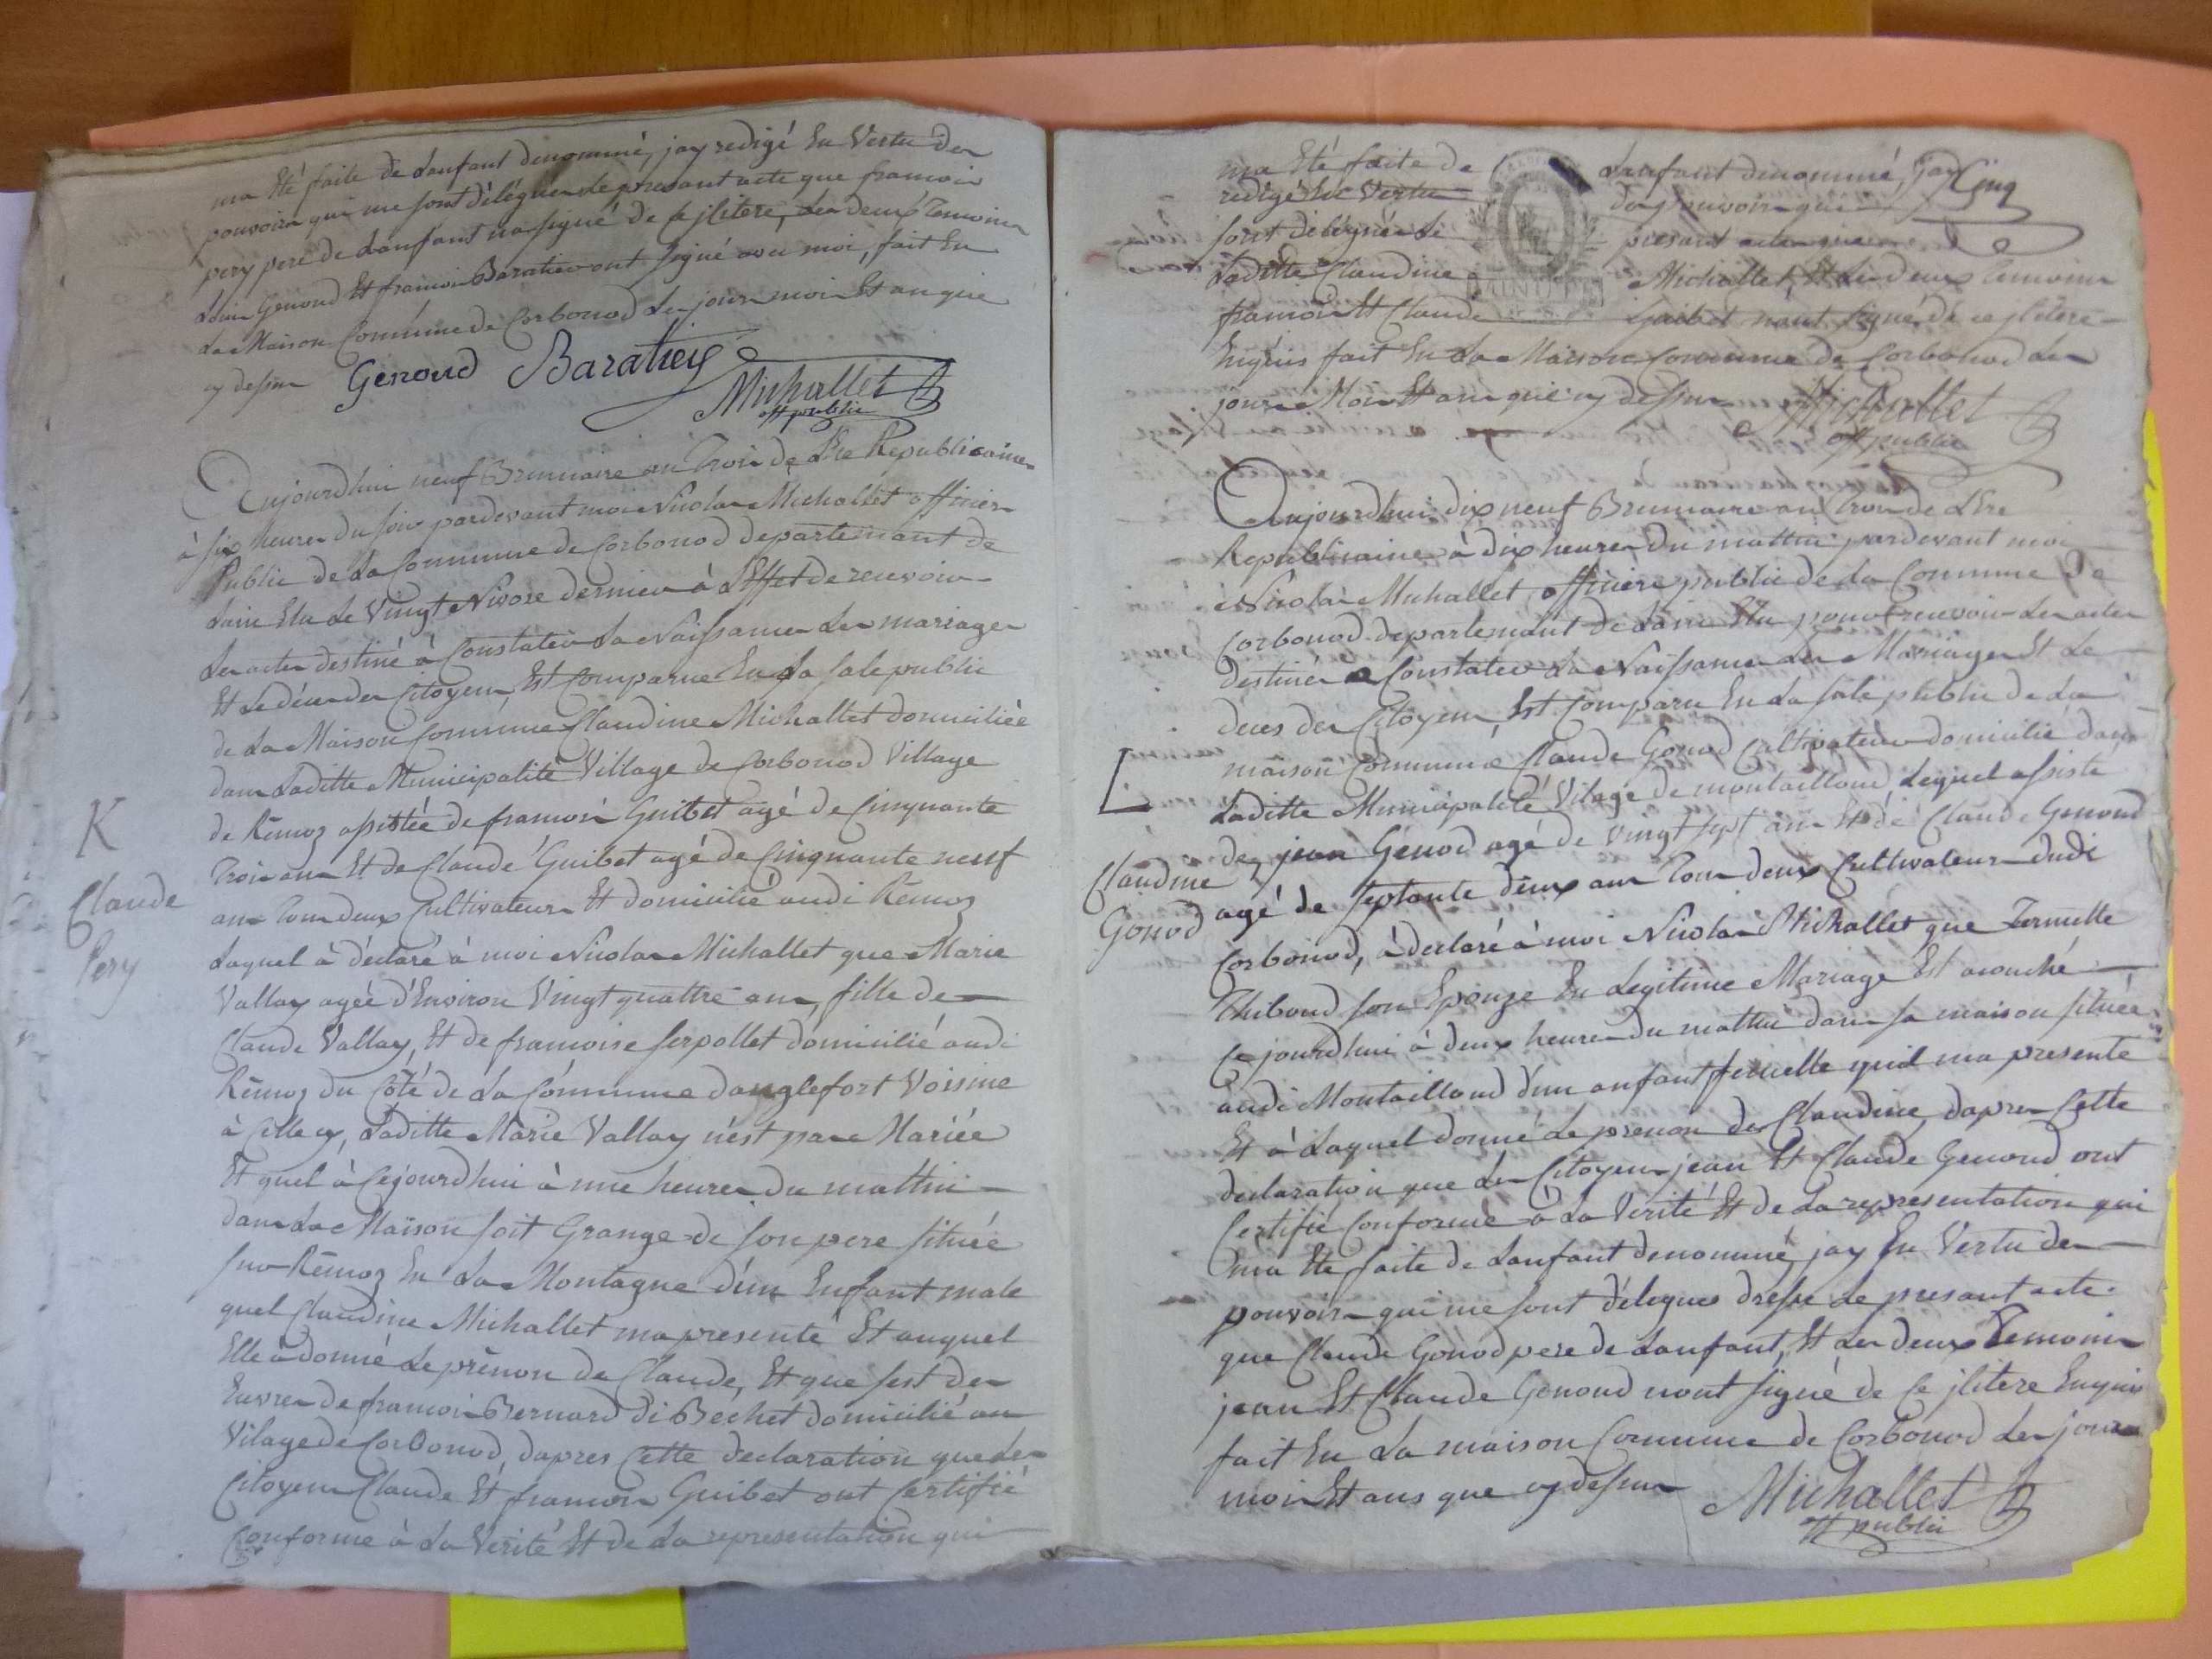 ma Eté faite de Lanfant denommé, jay redigé En Vertu der
pouvoirs qui me sont délégués Le presant acte que francois
pery pere de Lanfant na signé de ce jlitere, Les deux Temoins
Genoud Et francois Baratier ont signé avec moi, fait En
La Maison Commune de Corbonod Les jour mois Et an que
cy dessus Genoud Baratier
Michallet
off public
Aujourdhui neuf Brumaire an Trois de L'Ere Republicaine
à six heures du soir pardevant moi Nicolas Michallet officier
Public de La Commune de Corbonod departemant de
Lain Elu Le Vingt Nivose dernier à L'Effet de recevoir
Les actes destiné à Constater La Naissance Les mariages
Et Le déces des Citoyens, Est Comparue En La sale public
de La Maison Commune Claudine Michallet domiciliée
dans Laditte Municipalité Village de Corbonod Village
de Rémoz assistée de francois Guibet agé de Cinquante
Trois ans Et de Claude Guibet agé de Cinquante neuf
ans Tous deux Cultivateurs Et domicilié audi Rémoz
Laquel à déclaré à moi Nicolas Michallet que Marie
Vallay agée d'Environ Vingt quattre ans, fille de
Claude Vallay, Et de francoise serpollet domicilié audi
Rémoz du Côté de La Commune danglefort Voisine
à Celle cy, Laditte Marie Vallay n'est pas Mariée
Et quel à Cejourdhui à une heures du mattin
dans La Maison soit Grange de son pere située
sur Rémoz En La Montagne d'un Enfant male
quel Claudine Michallet ma presenté Et auquel
Elle à donné Le prénon de Claude, Et que sest des
Euvres de francois Bernard di Bechet domicilié au
Vilage de Corbonod, dapres Cette declaration que Les
Citoyens Claude Et francois Guibet ont Certifié
Conforme à La Verité Et de La representation qui
K
Claude
Pery
ma Eté faite de Lanfant denommé, jay Cinq
redigé En Vertu des pouvoirs qui
sont délégués Le presant acte que
Laditte Claudine Michallet, Et Les deux Temoins
francois Et Claude Guibet nont signé de ce jlitere
Enquis fait En La Maison Commune de Corbonod Les
jour Mois Et an que cy dessus Michallet
off public
Aujourdhui dix neuf Brumaire an Trois de L'Ere
Republicaine à dix heures du mattin pardevant moi
Nicolas Michallet, officiere public de La Commune de
Corbonod departemant de Lain Elu pour recevoir Les actes
destinés a Constater La Naissance Les Mariages Et Le
deces des Citoyens, Est Comparu En La sale public de La
maison Commune Claude Gonod Cultivateur domicilié dans
Laditte Municipalité Vilage de montailloud Lequel assisté
de jean Génod agé de Vingt sept ans Et de Claude Genoud
agé de septante deux ans Tous deux Cultivateurs dudi
Corbonod, à declaré à moi Nicolas Michallet que
Thiboud son Epouze En Legitime Mariage Est acouché
Ce jourdhui à deux heures du mattin dans sa maison située
audi Montailloud d'un anfant femelle quil ma presenté
Et à Laquel donné Le prenon de Claudine, dapres Cette
declaration que Les Citoyens jean Et Claude Genoud ont
Certifié Conforme à La Verité Et de La representation qui
ma Eté faite de Lanfant denommé, jay En Vertu des
pouvoirs qui me sont délegués dressé Le presant acte
que Claude Gonod pere de Lanfant, Et Les deux Temoins
jean Et Claude Genoud nont signé de Ce jlitere Enquis
fait En La maison Commune de Corbonod Les jour
mois Et ans que cy dessus Michallet
off public
Claudine
Gonod